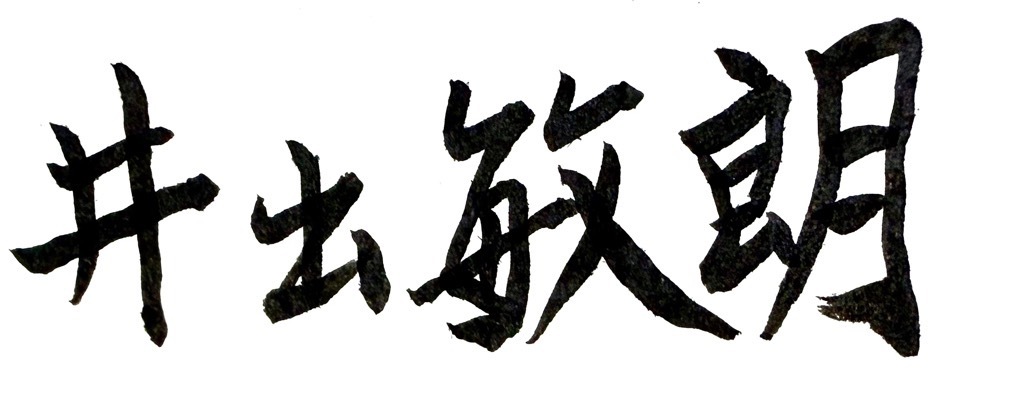 井出敏朗